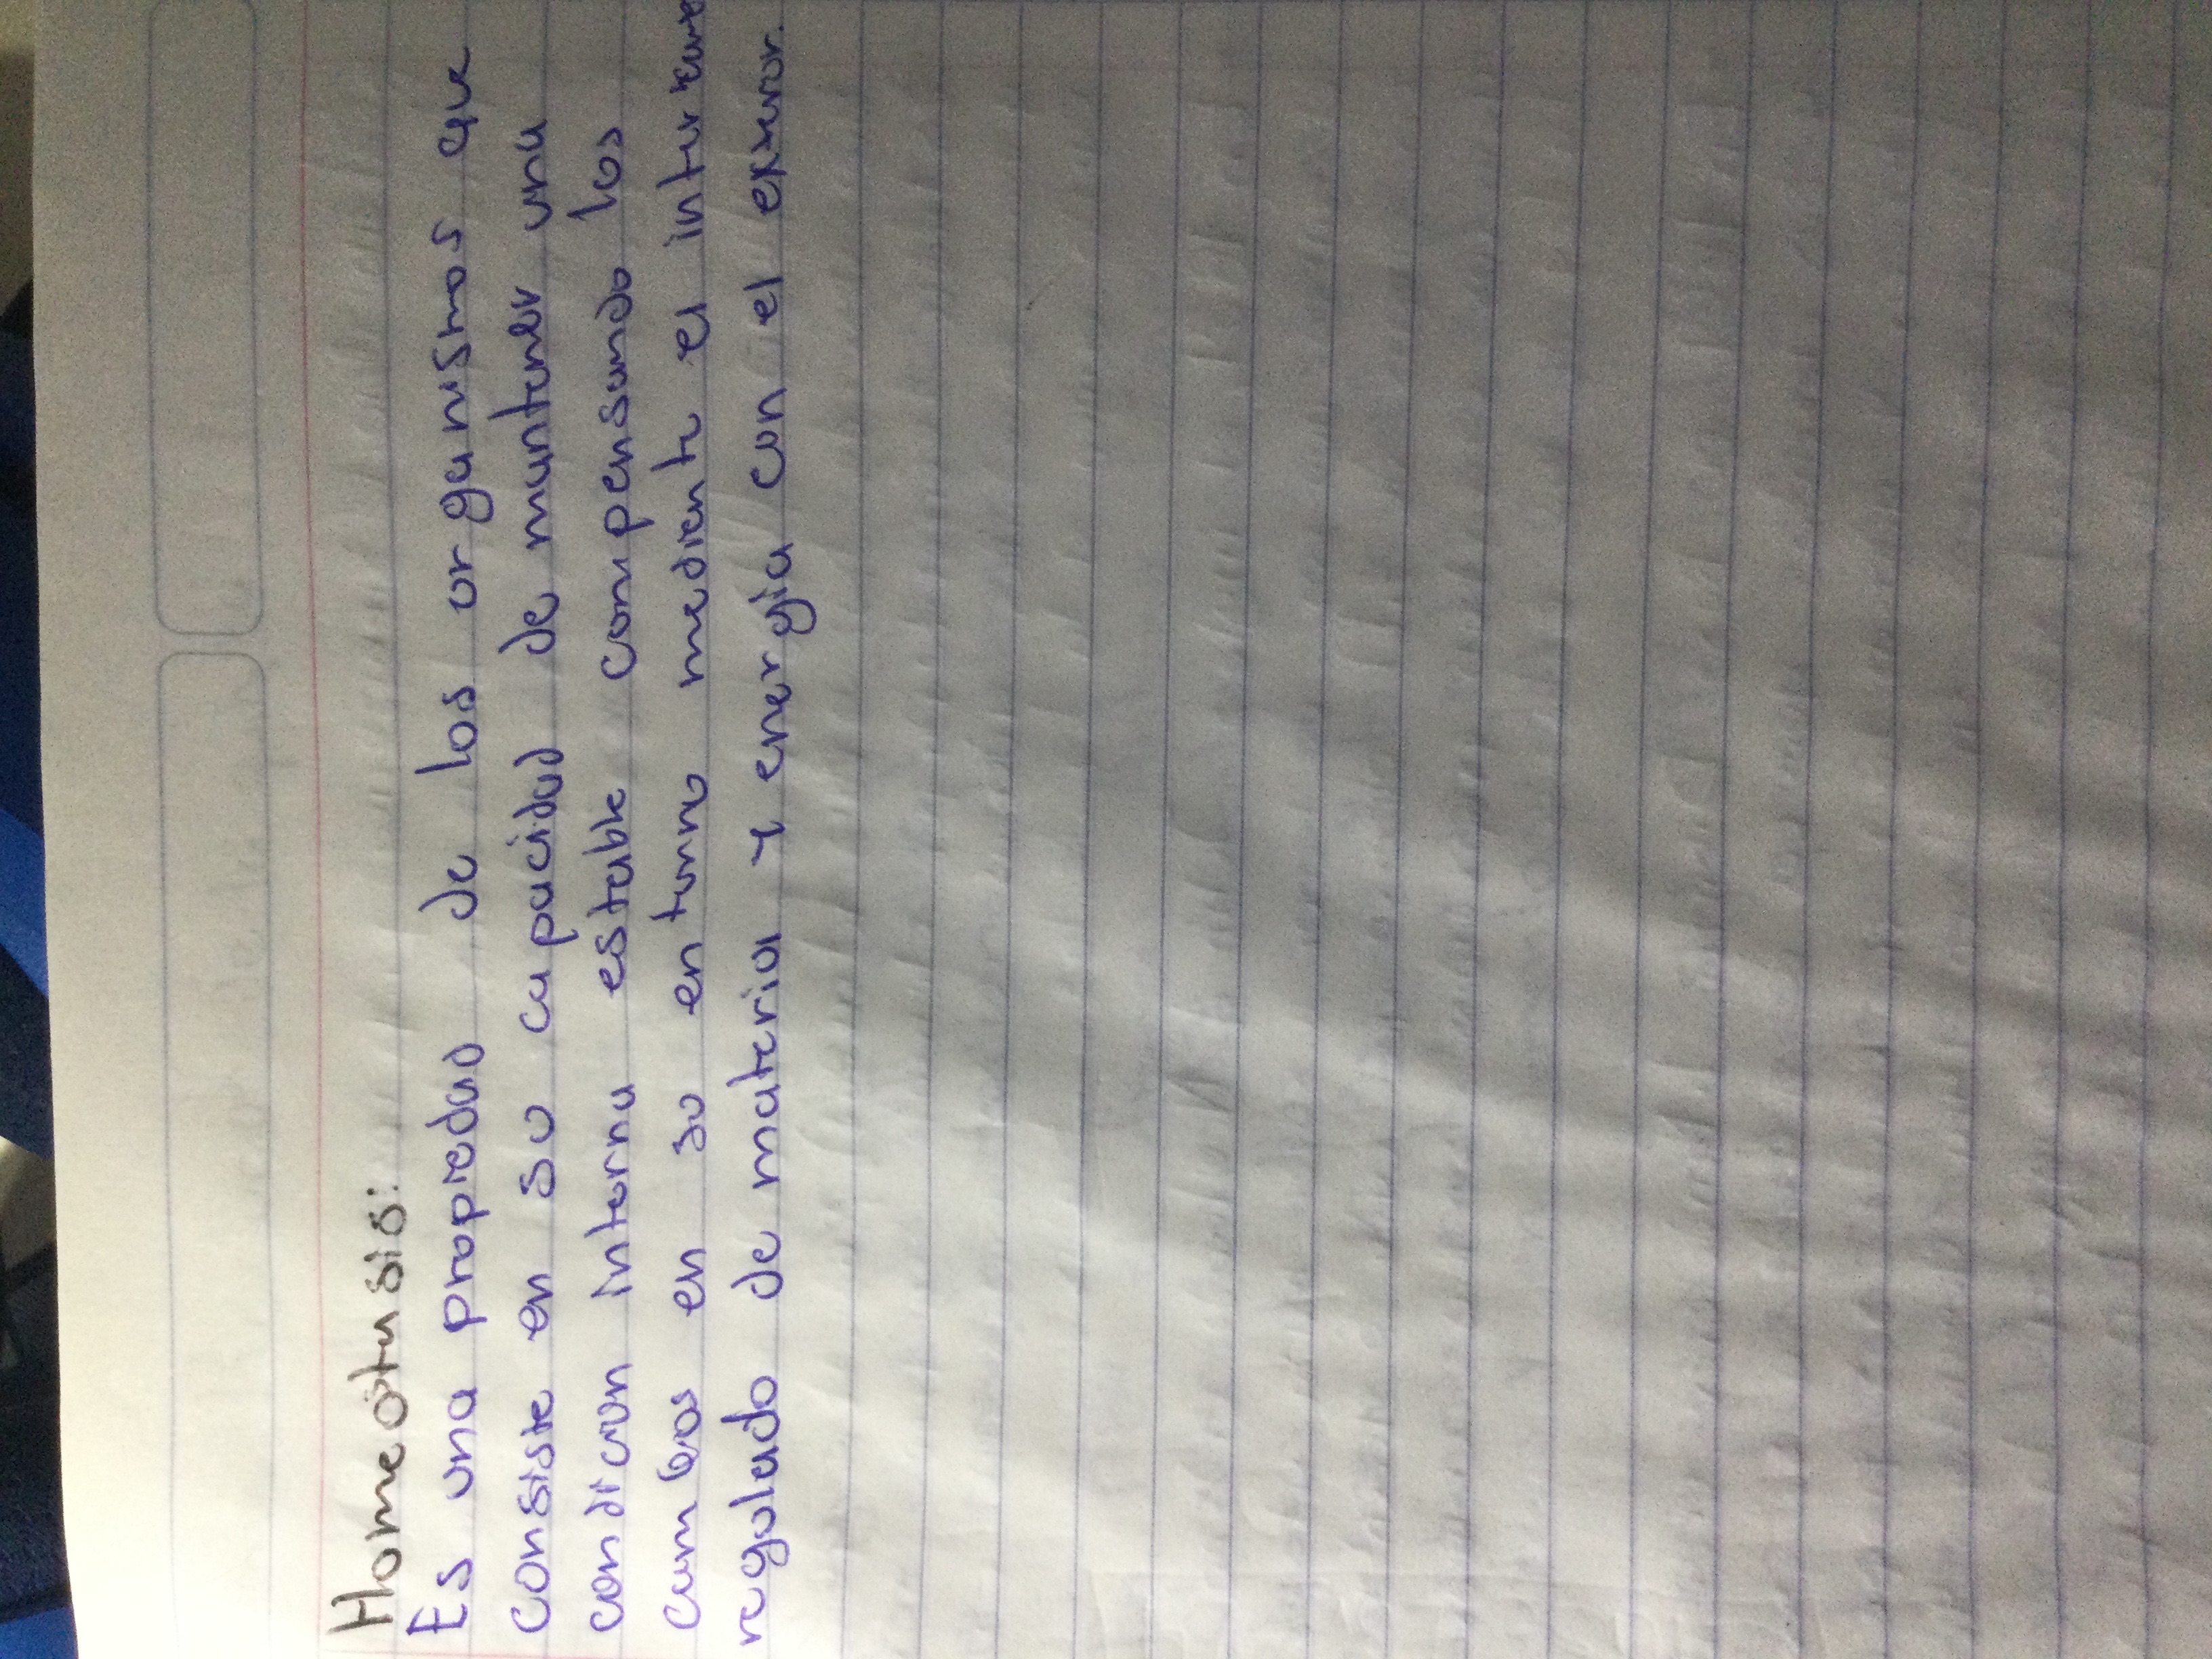 Homeótasis:
Es una propiedad de los organismos que
consiste en su capacidad de mantener una
condicion interna estable compensando los
cambios en su entorno mediente el
regulado de materia y energía con el exterior.